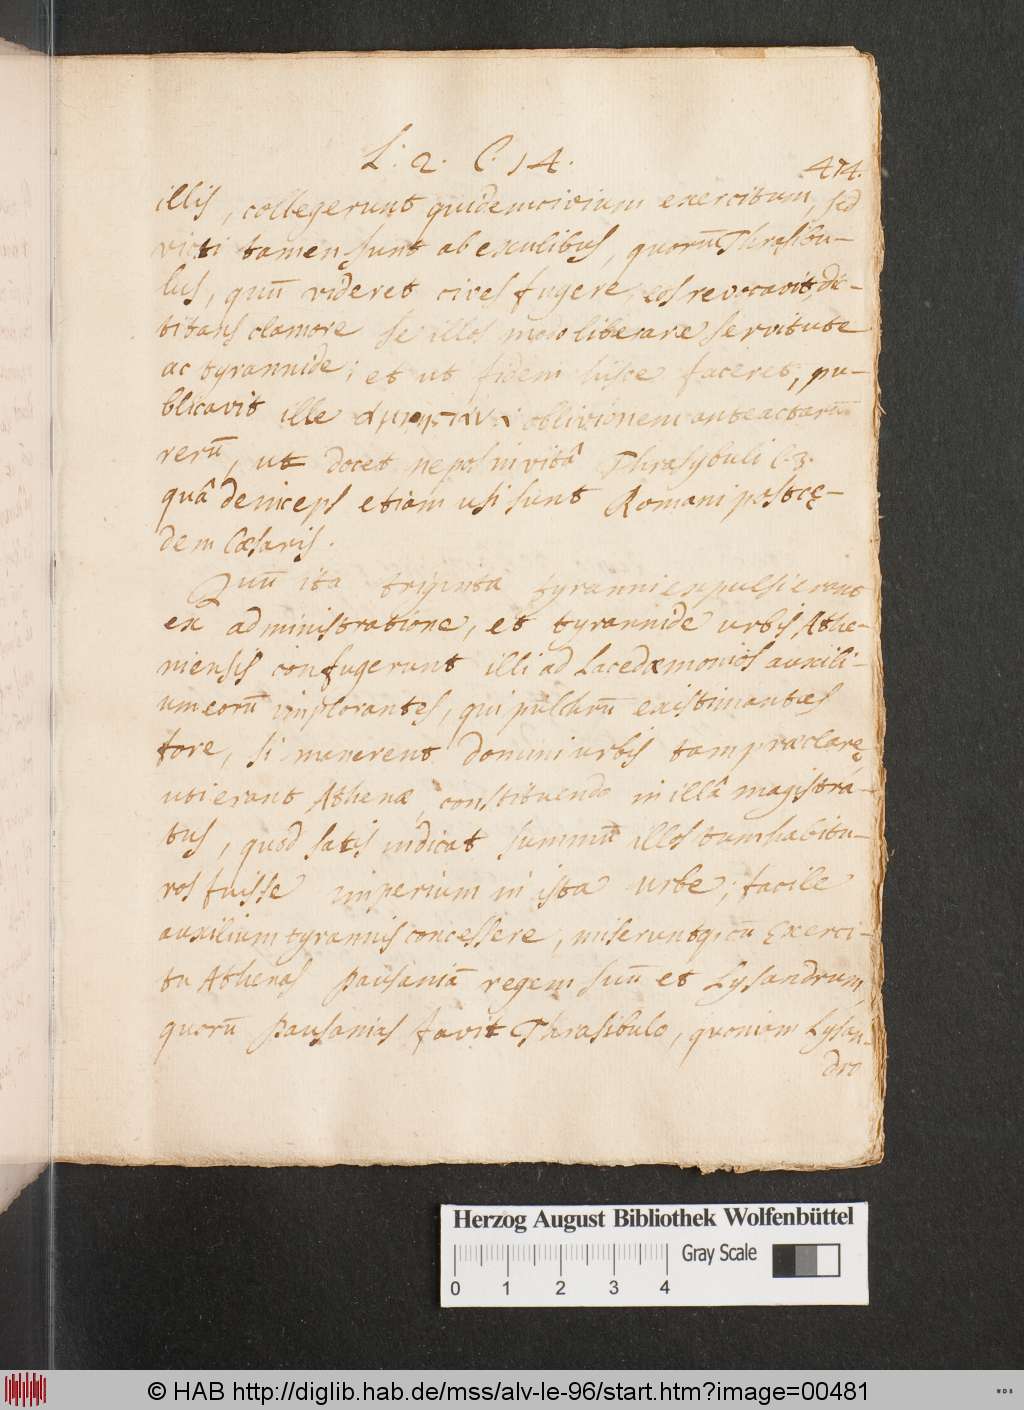 L: 2. C. 14.
474.
illis, collegerunt quidem civium exercitum, sed
victi tamen sunt ab exulibus, quorū Thrasibu-
lus, quū videret cives fugere, eos revocavit, di-
titans clamore se illos modo liberare servitute
ac tyrannide; et ut fidem hisce faceret, pu-
blicavit ille oblivionem anteactarū
rerū, ut docet nepos in vitâ Thrasybuli C. 3.
quâ deinceps etiam usi sunt Romani post cę-
dem Cæsaris.
Quū ita triginta tyranni expulsi erant
ex administratione, et tyrannide urbis Athe-
niensis confugerunt illi ad Lacedæmonios auxili-
um eorū implorantes, qui pulchrū existimantes
fore, si manerent domini urbis tam præclarę
uti erant Athenæ, constituendo in illâ magistra-
tus, quod satis indicat summū illos tum habitu-
ros fuisse imperium in ista urbe; facile
auxilium tyrannis concessere, miseruntq; cū Exerci-
tu Athenas Pausaniā regem suū et Lysandrum,
quorū Pausanias favit Thrasibulo, quoniam Lysan-
dro
Herzog August Bibliothek Wolfenbüttel
Gray Scale
0 1 2 3 4
© HAB http://diglib.hab.de/mss/alv-le-96/start.htm?image=00481